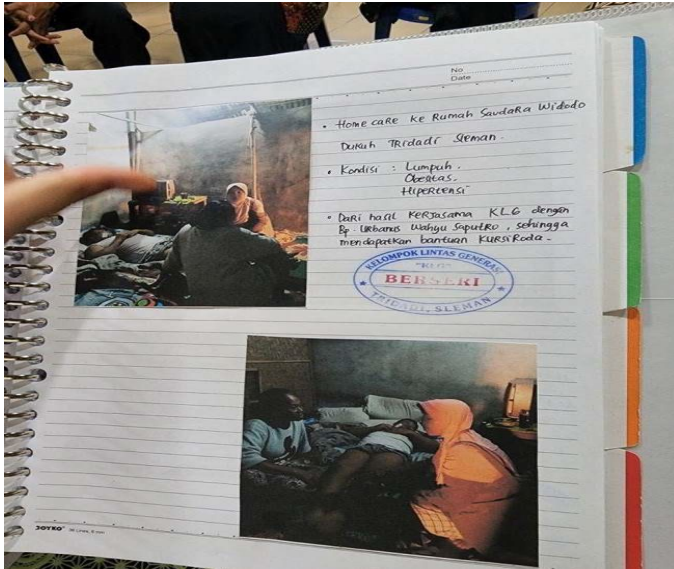 No
Date
• Home care ke Rumah Saudara Widodo
Dukuh TRidadi Sleman.
• Kondisi : Lumpuh.
Obesitas.
Hipertensi
• Dari hasil kerjasama KLG dengan
Bp. Urbanus Wahyu Saputro, sehingga
mendapatkan bantuan Kursi Roda.
KELOMPOK LINTAS GENERASI
"KLG"
BERSERI
TRIDADI, SLEMAN
JOYKO